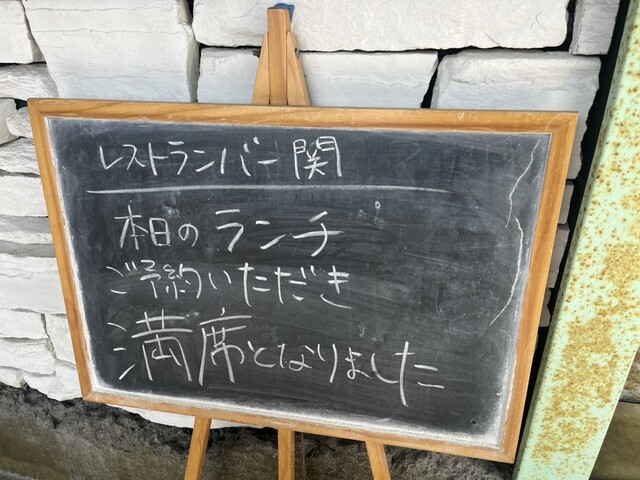 レストランバー関
本日のランチ
ご予約いただき
満席となりました